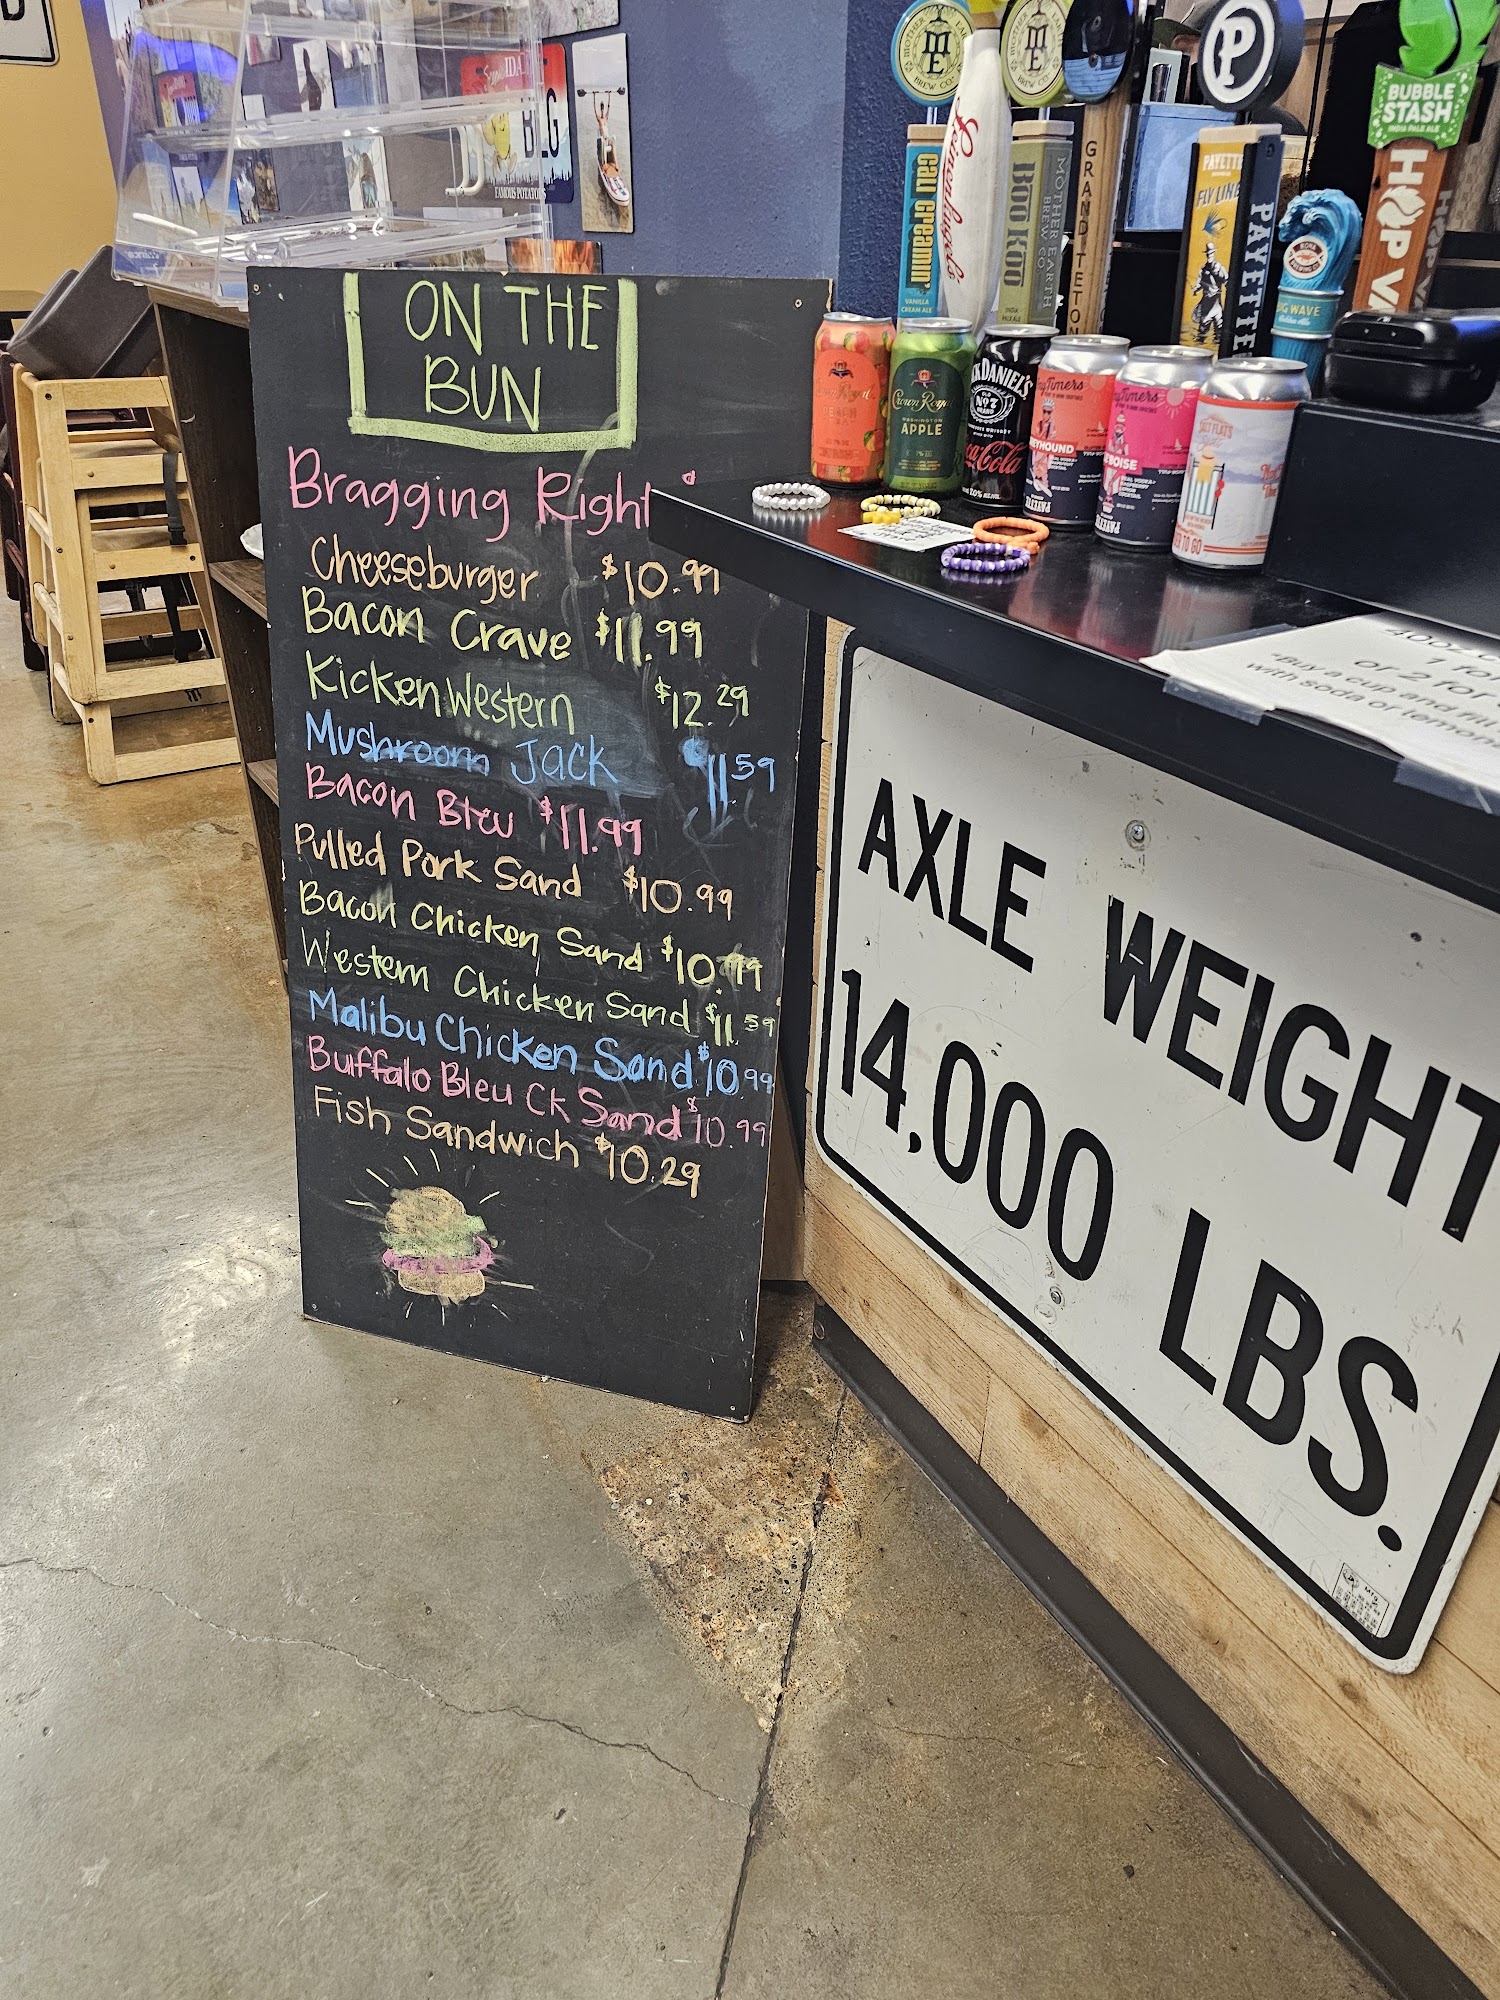 ON THE
BUN
Bragging Right
Cheeseburger $10.99
Bacon Crave $11.99
Kicken Western $12.29
Mushroom Jack $11.59
Bacon Bleu $11.99
Pulled Pork Sand $10.99
Bacon Chicken Sand $10.99
Western Chicken Sand $11.59
Malibu Chicken Sand $10.99
Buffalo Bleu Ck Sand $10.99
Fish Sandwich $10.29
AXLE WEIGHT
14,000 LBS.
FAMOUS POTATOES
ME
BREW CO
CALI CREAMIN'
VANILLA
CREAM ALE
Leinenkugel's
ME
BOO KOO
MOTHER EARTH
BREW CO
INDIA
PALE ALE
GRAND TETON
P
PAYETTE
FLY LINE
PAYETTE
KONA
BIG WAVE
BUBBLE
STASH
INDIA PALE ALE
HOP VA
HOP VA
Crown Royal
PEACH
Crown Royal
WASHINGTON
APPLE
JACK DANIEL'S
OLD
No.7
BRAND
Coca-Cola
7.0% ALC/VOL
PAYETTE
BOISE
PAYETTE
SALT FLATS
40oz
1 for
or 2 for
*Buy a cup and fill
with soda or lemon